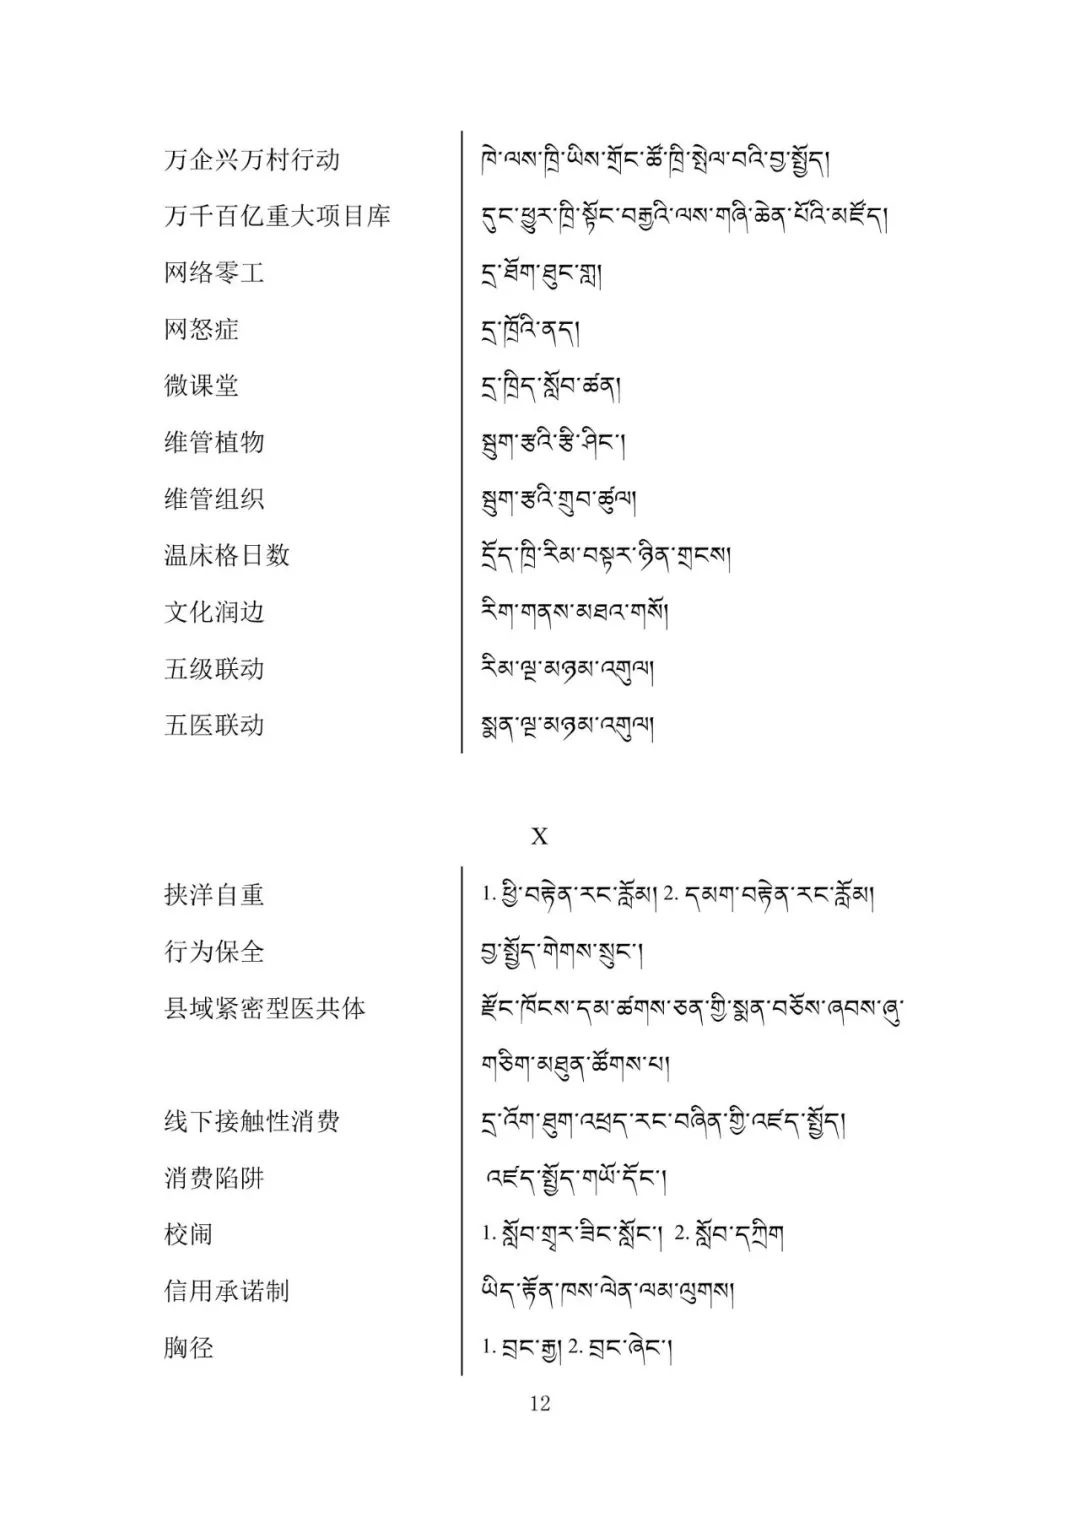 万企兴万村行动 ཁེ་ལས་ཁྲི་ཡིས་གྲོང་ཚོ་ཁྲི་སྤེལ་བའི་བྱ་སྤྱོད།
万千百亿重大项目库 དུང་ཕྱུར་ཁྲི་སྟོང་བརྒྱའི་ལས་གཞི་ཆེན་པོའི་མཛོད།
网络零工 དྲ་ཐོག་ཐུང་གླ།
网怒症 དྲ་ཁྲོའི་ནད།
微课堂 དྲ་ཁྲིད་སློབ་ཚན།
维管植物 སྦུག་རྩའི་རྩི་ཤིང་།
维管组织 སྦུག་རྩའི་གྲུབ་ཚུལ།
温床格日数 དྲོད་ཁྲི་རིམ་བསྟར་ཉིན་གྲངས།
文化润边 རིག་གནས་མཐའ་གསོ།
五级联动 རིམ་ལྔ་མཉམ་འགུལ།
五医联动 སྨན་ལྔ་མཉམ་འགུལ།
X
挟洋自重 1. ཕྱི་བརྟེན་རང་རློམ། 2. དམག་བརྟེན་རང་རློམ།
行为保全 བྱ་སྤྱོད་གེགས་སྲུང་།
县域紧密型医共体 རྫོང་ཁོངས་དམ་ཚགས་ཅན་གྱི་སྨན་བཅོས་ཞབས་ཞུ་
གཅིག་མཐུན་ཚོགས་པ།
线下接触性消费 དྲ་འོག་ཐུག་འཕྲད་རང་བཞིན་གྱི་འཛད་སྤྱོད།
消费陷阱 འཛད་སྤྱོད་གཡོ་དོང་།
校闹 1. སློབ་གྲྭར་ཟིང་སློང་། 2. སློབ་དཀྲིག
信用承诺制 ཡིད་རྟོན་ཁས་ལེན་ལམ་ལུགས།
胸径 1. བྲང་རྒྱ། 2. བྲང་ཞེང་།
12